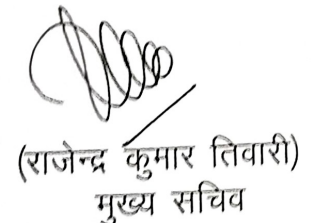 (राजेन्द्र कुमार तिवारी)
मुख्य सचिव